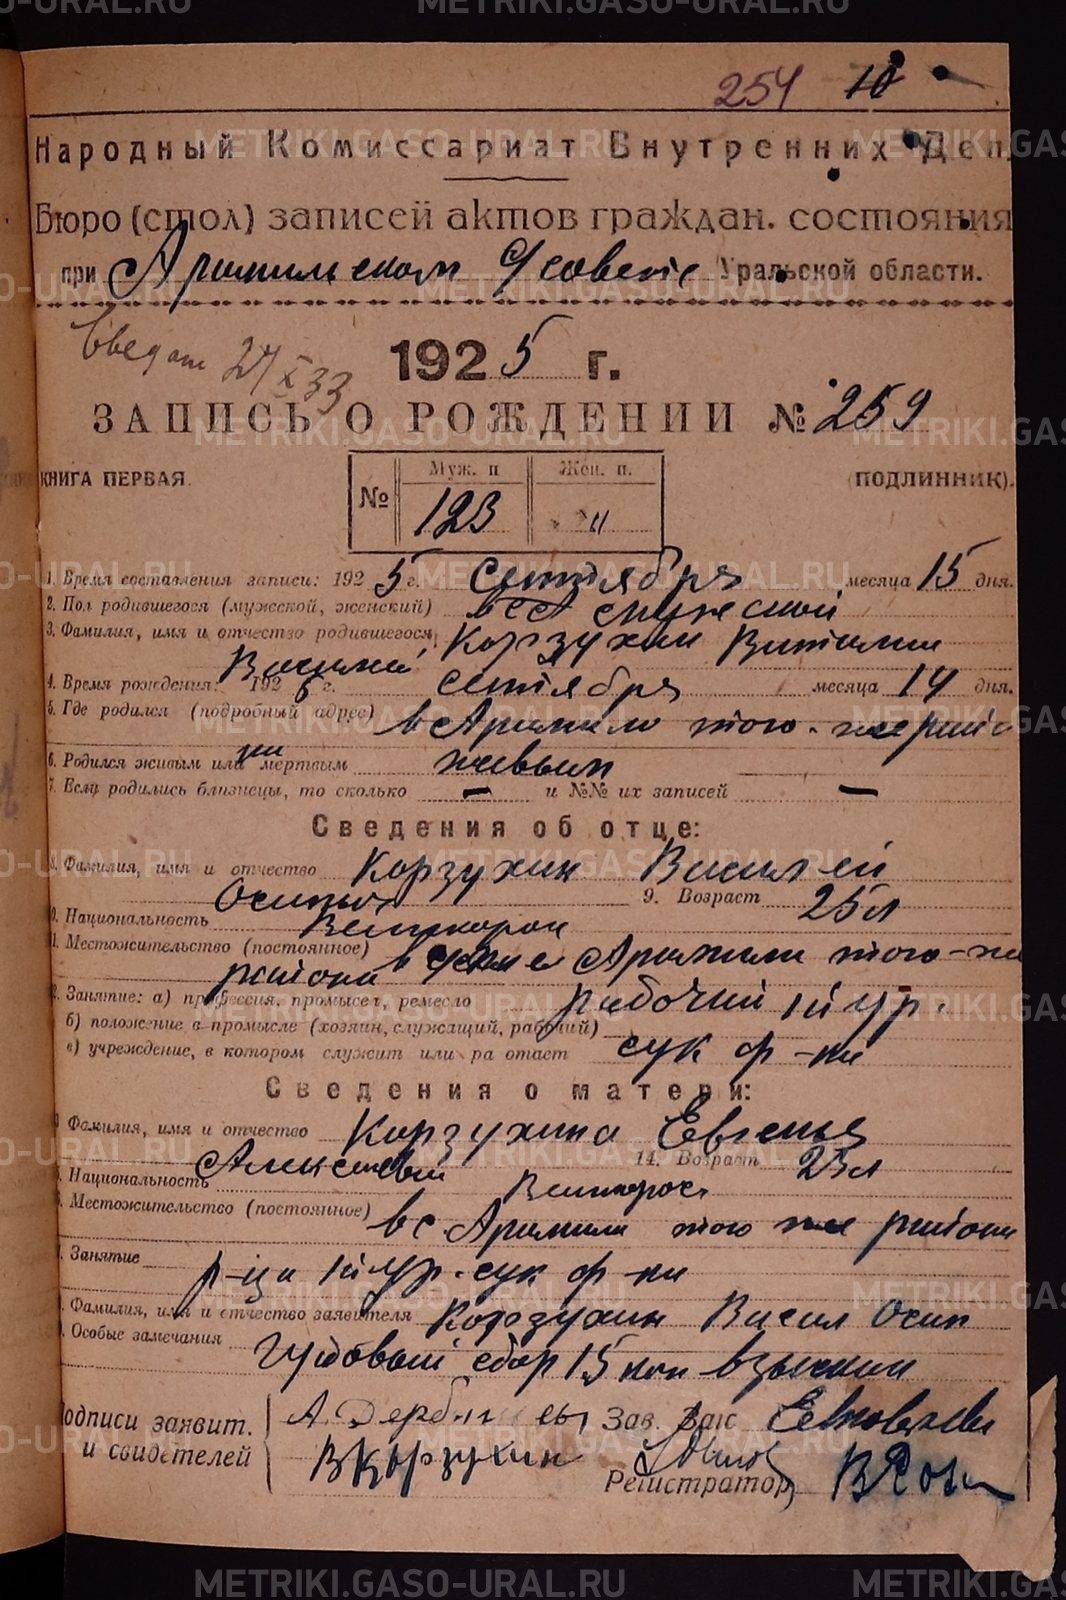 254 10
Народный Комиссариат Внутренних Дел.
Бюро (стол) записей актов граждан. состояния
при Арамильском С/совете Уральской области.
27/X 33
1925 г.
ЗАПИСЬ О РОЖДЕНИИ № 259
КНИГА ПЕРВАЯ. (ПОДЛИННИК).
№ Муж. п Жен. п.
123 "
1. Время составления записи: 1925 г. Сентября месяца 15 дня.
2. Пол родившегося (мужской, женский) мужской
3. Фамилия, имя и отчество родившегося Корзухин Виталий
Васильй
4. Время рождения: 1925 г. сентября месяца 14 дня.
5. Где родился (подробный адрес) в с Арамиль того-же райо
6. Родился живым или мертвым живым
7. Если родились близнецы, то сколько — и №№ их записей —
Сведения об отце:
8. Фамилия, имя и отчество Корзухин Василей
Осипыч 9. Возраст 25 л
10. Национальность Великорос
11. Местожительство (постоянное) Арамили того-же
района
12. Занятие: а) профессия, промысел, ремесло рабочий
б) положение в промысле (хозяин, служащий, рабочий)
в) учреждение, в котором служит или работает сук ф-ки
Сведения о матери:
Фамилия, имя и отчество Корзухина Евгенья
Алексеевн 14. Возраст 25 л
Национальность Великорос.
Местожительство (постоянное) в с Арамили того же района
Занятие р-ца сук ф-ки
Фамилия, имя и отчество заявителя Корзухин Васил Осип
Особые замечания сбор 15 коп взыскан
Подписи заявит. Зав. Загс
и свидетелей В Кързухин
Регистратор
METRIKI.GASO-URAL.RU